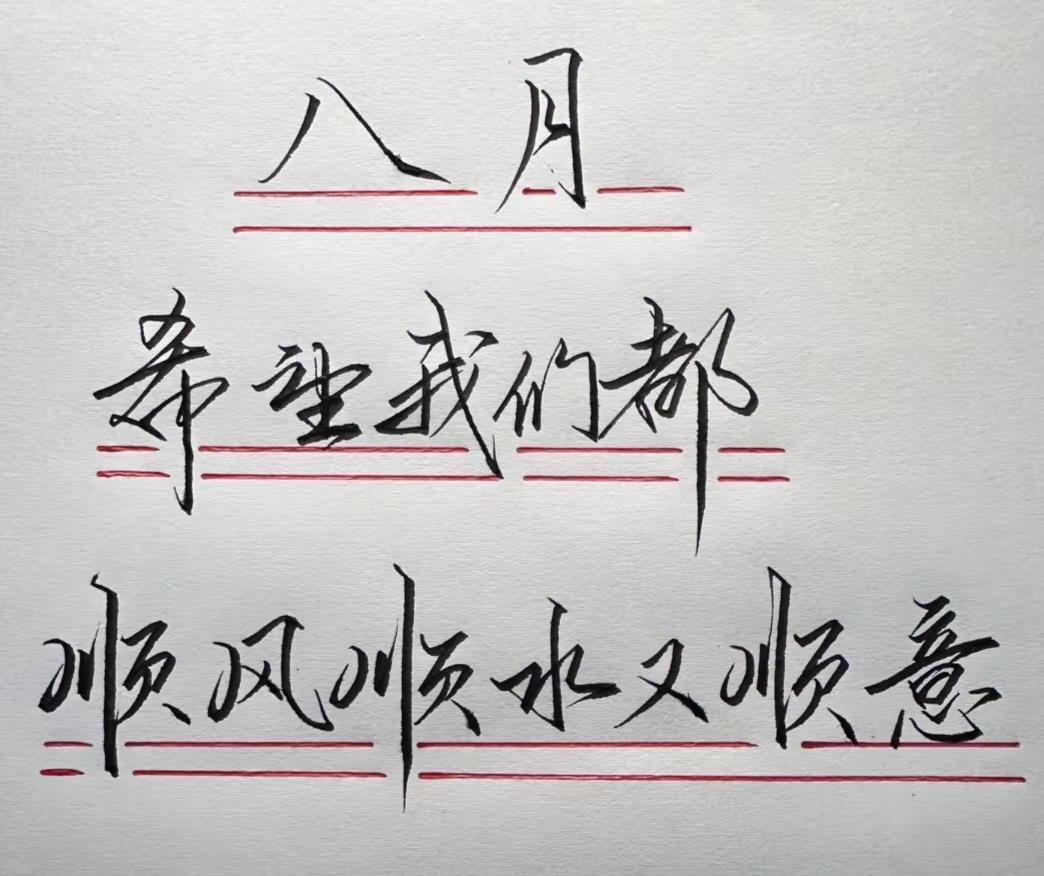 八月
希望我们都
顺风顺水又顺意